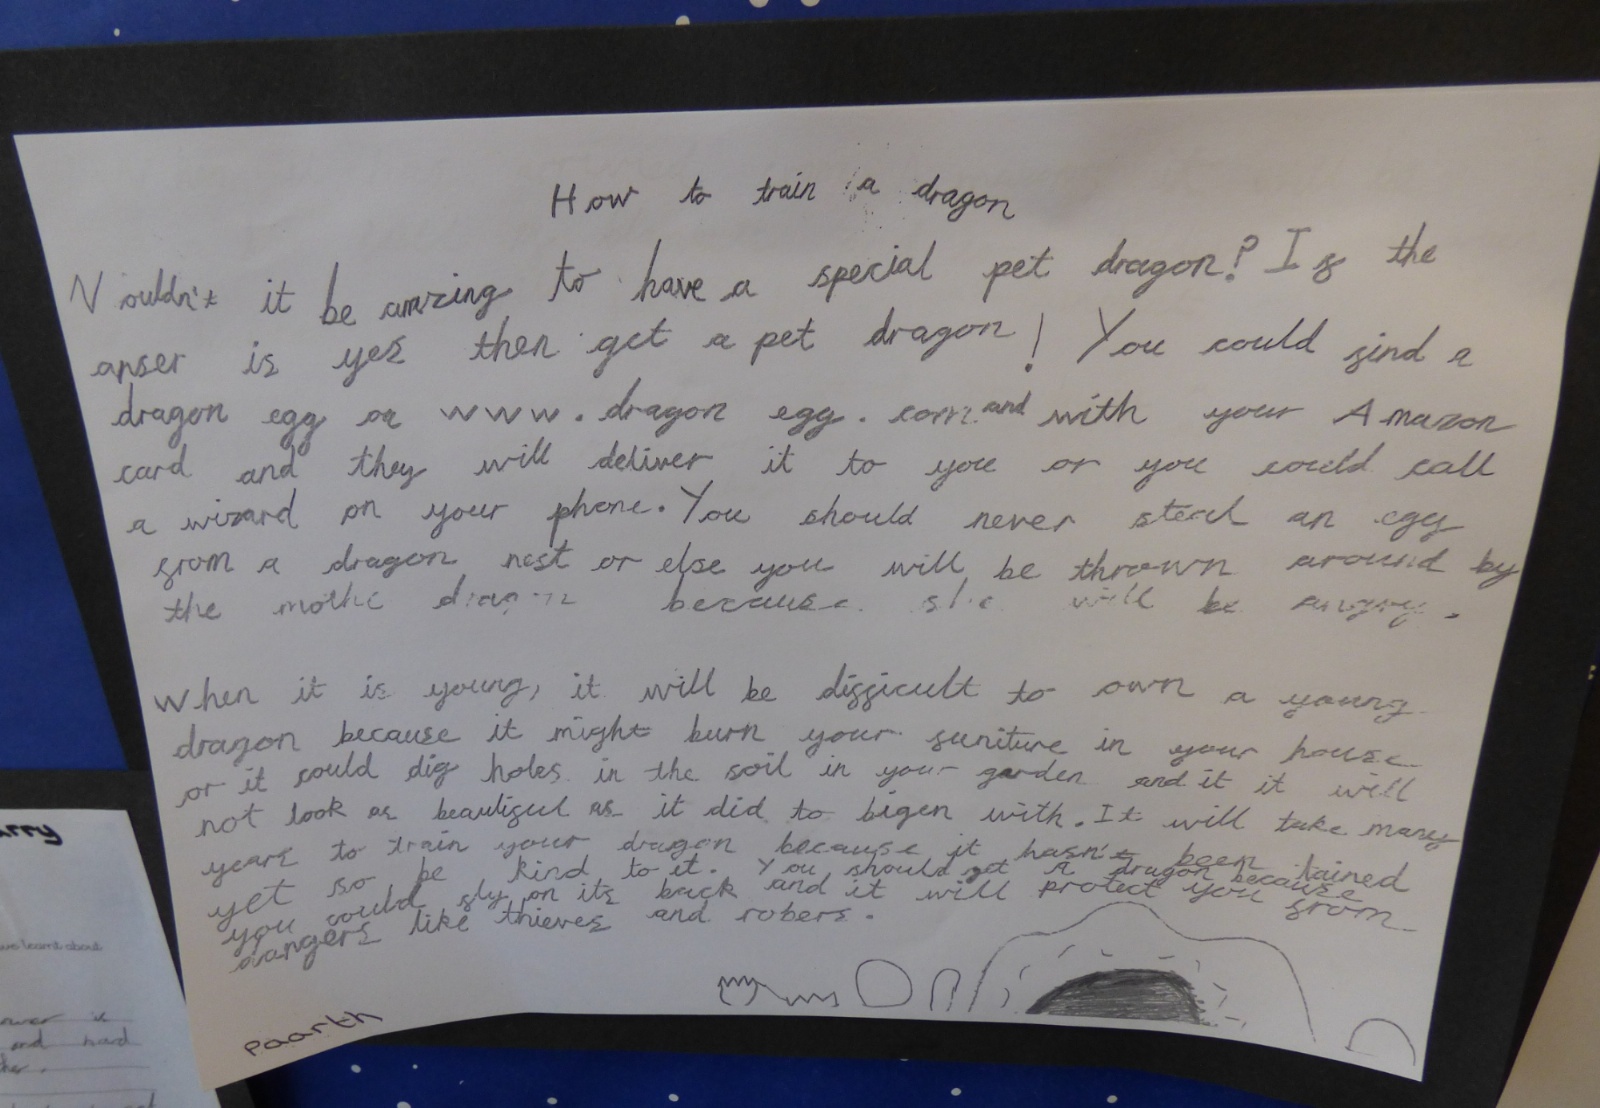 How to train a dragon
Wouldn't it be amazing to have a special pet dragon? If the
anser is yes then get a pet dragon! You could find a
dragon egg on www.dragon egg.com and with your Amazon
card and they will deliver it to you or you could call
a wizard on your phone. You should never steal an egg
from a dragon nest or else you will be thrown around by
the mothe dragon because she will be angry.
When it is young, it will be difficult to own a young
dragon because it might burn your funiture in your house
or it could dig holes in the soil in your garden and it it will
not look as beautiful as it did to bigen with. It will take many
years to train your dragon because it hasn't been tained
yet so be kind to it. You should get a dragon because
you could fly on its back and it will protect you from
dangers like thieves and robers.
Paarth
arry
we learnt about
and hard